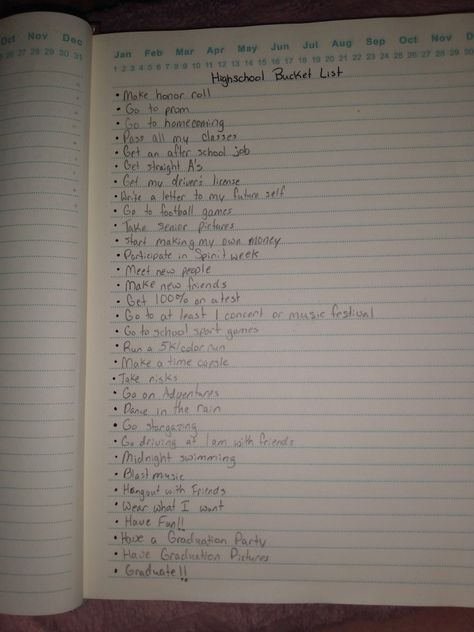 Oct Nov Dec
26 27 28 29 30 31
Jan Feb Mar Apr May Jun Jul Aug Sep Oct Nov D
1 2 3 4 5 6 7 8 9 10 11 12 13 14 15 16 17 18 19 20 21 22 23 24 25 26 27 28 29 30
Highschool Bucket List
• Make honor roll
• Go to prom
• Go to homecoming
• Pass all my classes
• Get an after school job
• Get straight A's
• Get my driver's license
• Write a letter to my future self
• Go to football games
• Take senior pictures
• Start making my own money
• Participate in Spirit week
• Meet new people
• Make new friends
• Get 100% on a test
• Go to at least 1 concert or music festival
• Go to school sport games
• Run a 5K/color run
• Make a time capsle
• Take risks
• Go on Adventures
• Dance in the rain
• Go stargazing
• Go driving at 1am with friends
• Midnight swimming
• Blast music
• Hangout with Friends
• Wear what I want
• Have Fun!!
• Have a Graduation Party
• Have Graduation Pictures
• Graduate!!